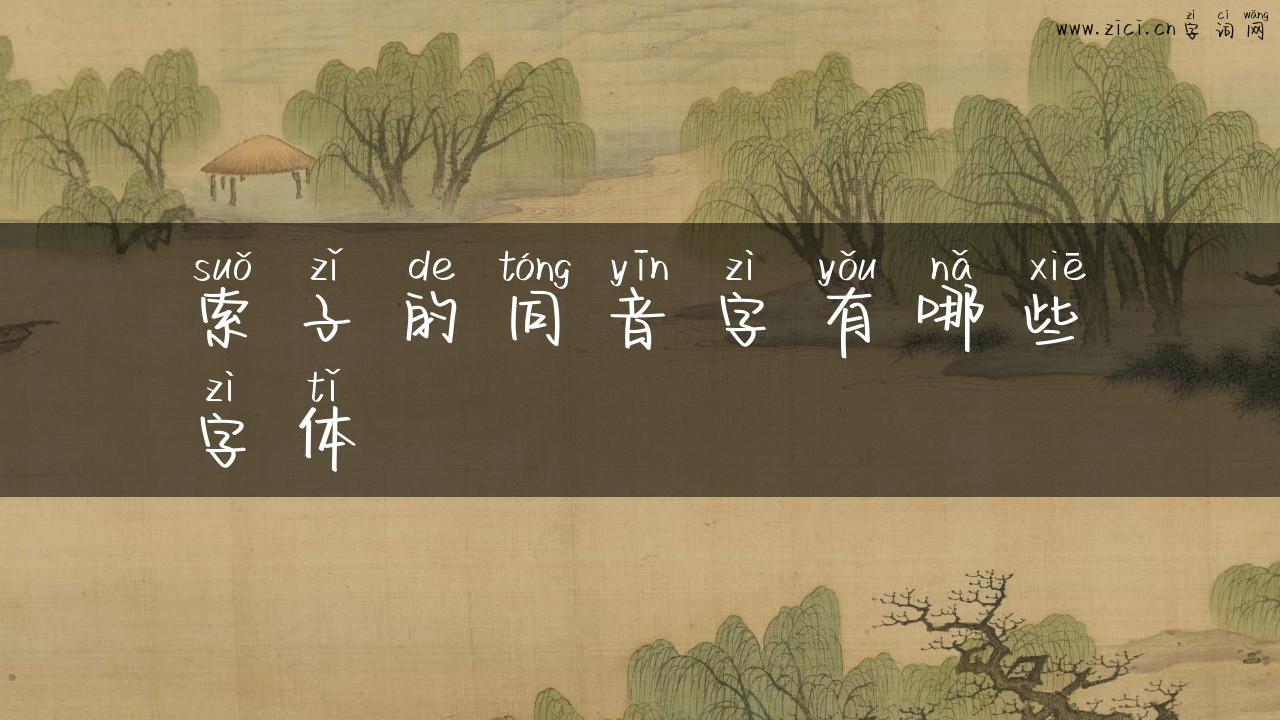 zì cí wǎng
www.zici.cn 字 词 网
suǒ zǐ de tóng yīn zì yǒu nǎ xiē
索 子 的 同 音 字 有 哪 些
zì tǐ
字 体